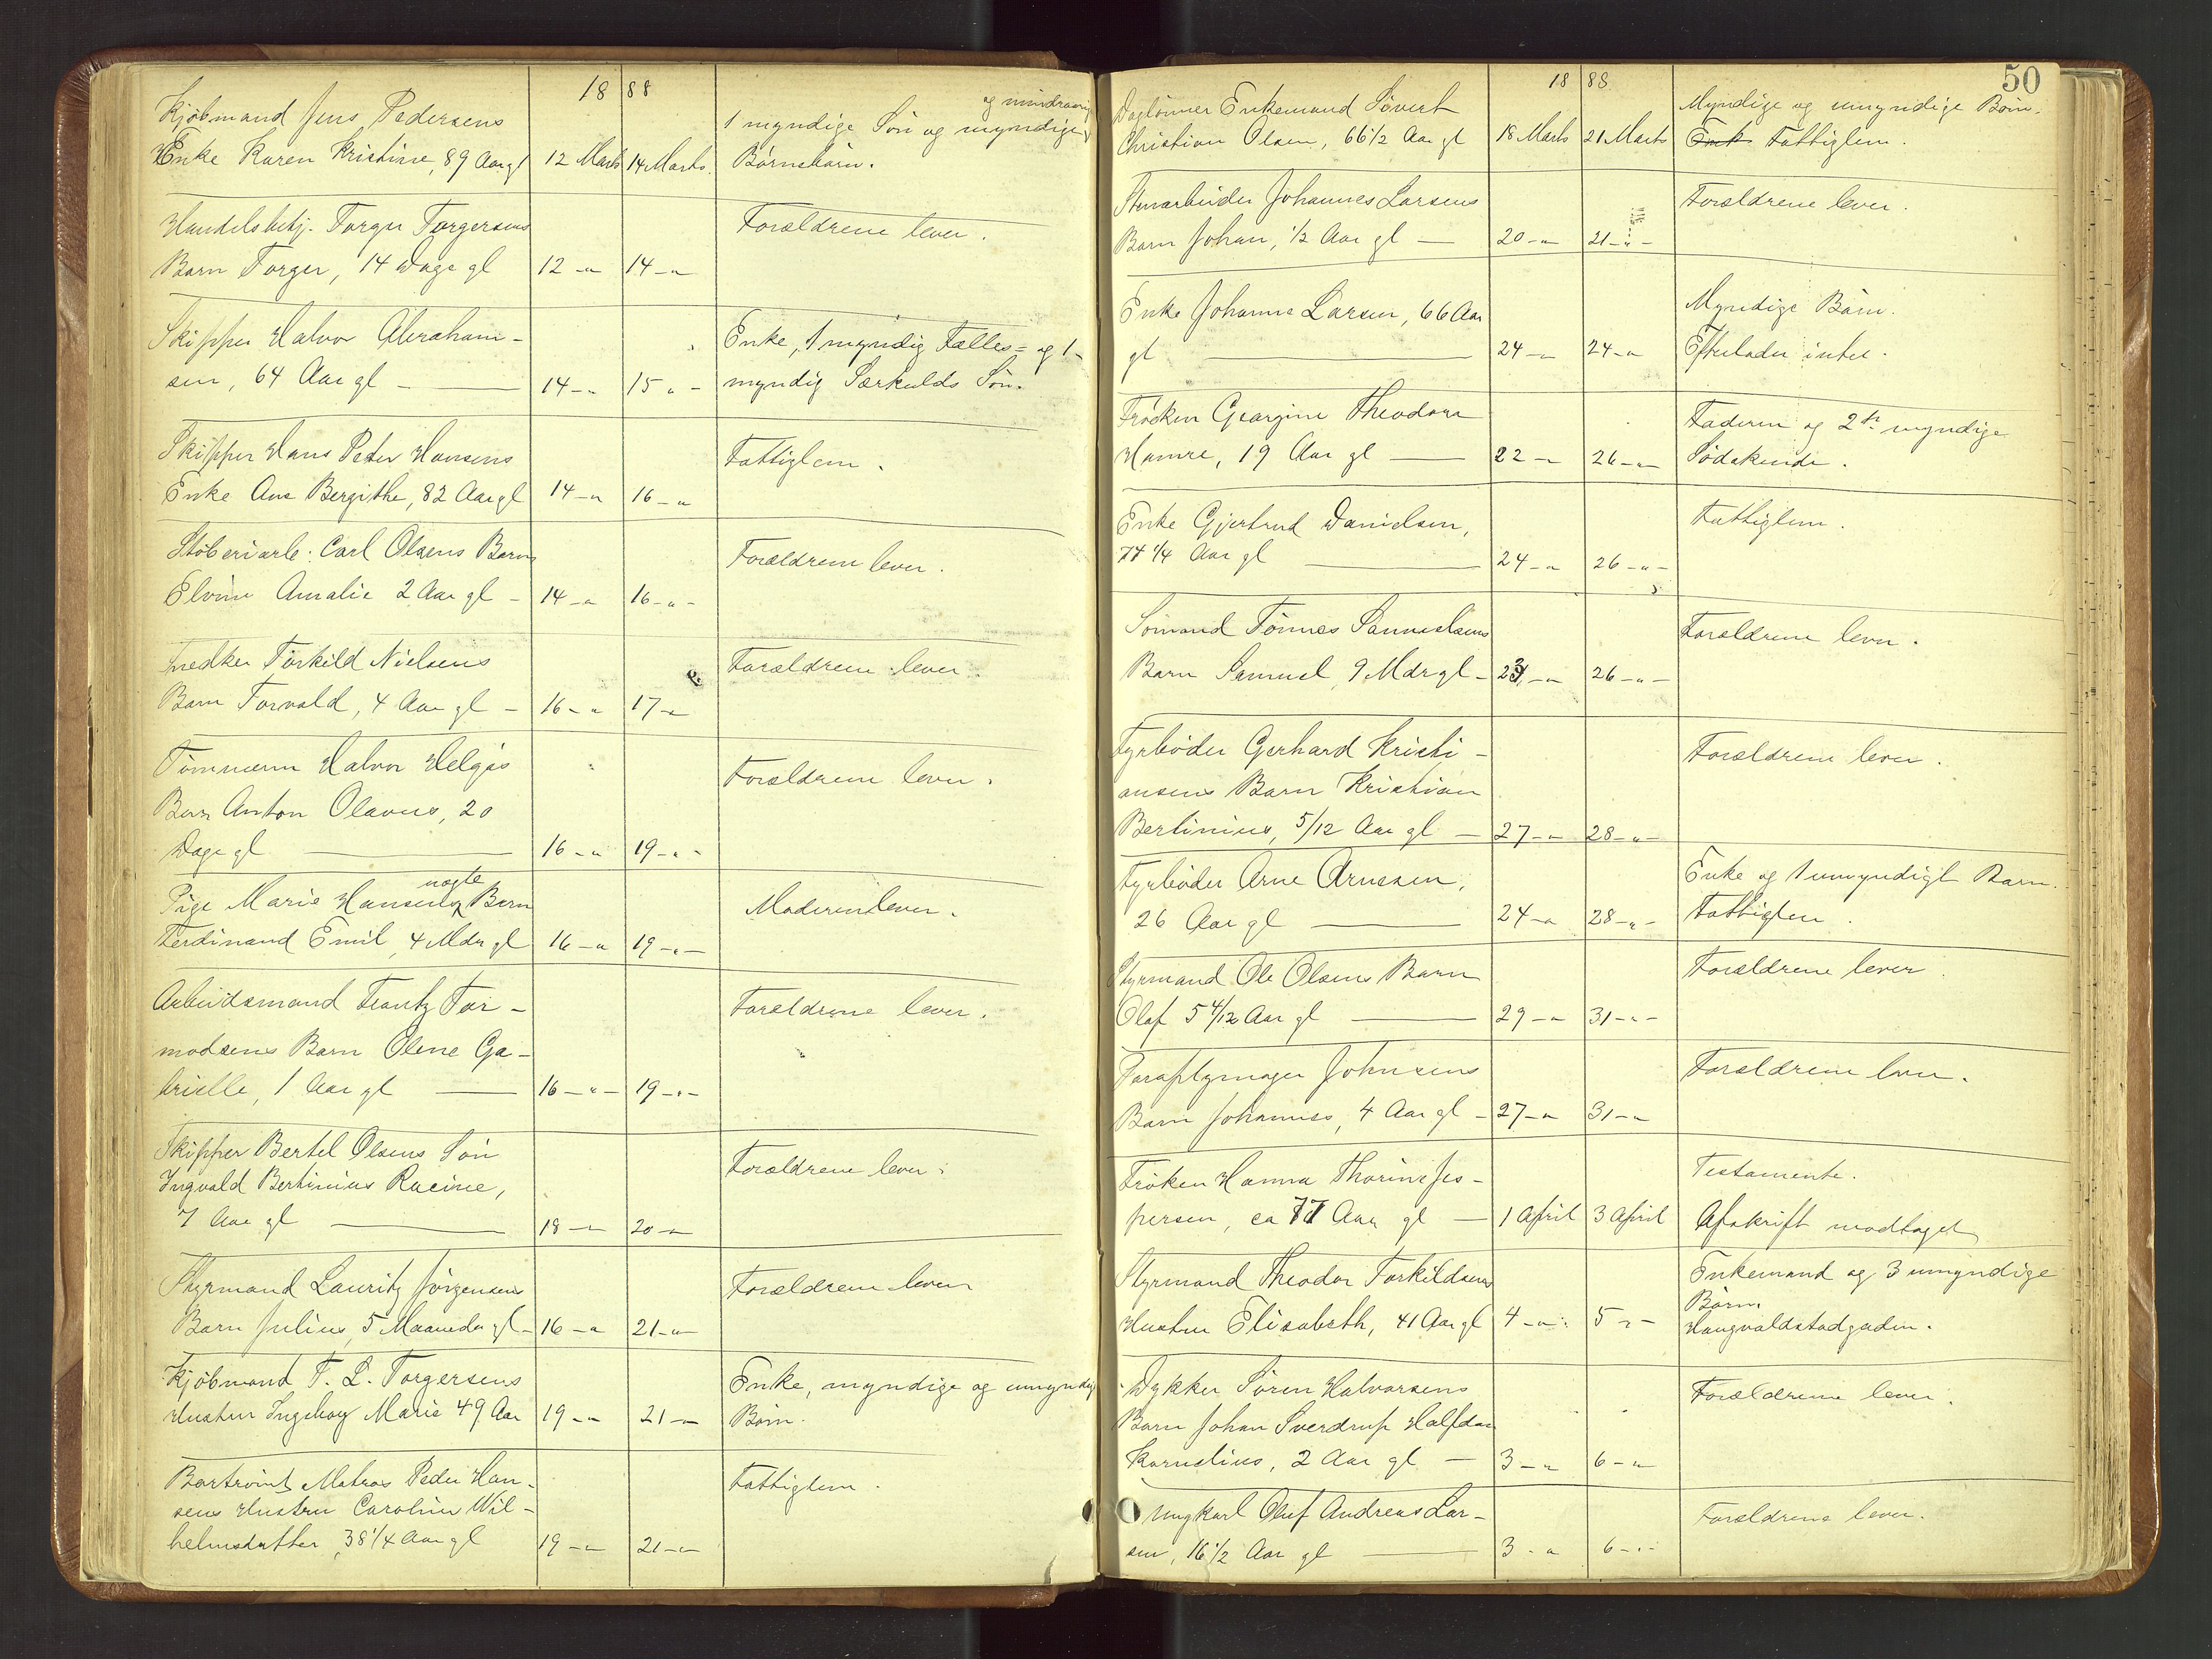 18 88
Kjöbmand Jens Pedersens
og mindreårig
1 myndige Sön og myndige
Enke Karen Kristine, 89 Aar gl 12 Marts 14 Marts. Börnebörn.
Handelsbetj. Torger Torgersens
Forældrene lever.
Barn Torger, 14 Dage gl 12 -"- 14 -"-
Skipper Halvor Abraham-
Enke, 1 myndig Fælles- og 1
sen, 64 Aar gl — 14 -"- 15 -"- myndig Særkulds Sön.
Skipper Hans Peder Hansens
Fattiglem.
Enke Ane Bergithe, 82 Aar gl 14 -"- 16 -"-
Stöberiarb. Carl Olsens Barn
Forældrene lever.
Elvine Amalie 2 Aar gl - 14 -"- 16 -"-
Snedker Törkild Nielsens
Forældrene lever.
Barn Torvald, 4 Aar gl - 16 -"- 17 -"-
Tömmerm Halvor Helgös
Forældrene lever.
Barn Anton Olavus, 20
Dage gl — 16 -"- 19 -"-
uægte
Pige Marie Hansens Barn
Moderen lever.
Ferdinand Emil, 4 Mdr gl 16 -"- 19 -"-
Arbeidsmand Frantz Tor-
Forældrene lever.
modsens Barn Olene Ga-
brielle, 1 Aar gl — 16 -"- 19 -"-
Skipper Bertel Olsens Sön
Forældrene lever.
Ingvald Bertinius Racine,
7 Aar gl — 18 -"- 20 -"-
Styrmand Lauritz Jörgensens
Forældrene lever
Barn Julius, 5 Maaneder gl - 16 -"- 21 -"-
Kjöbmand T. L. Torgersens
Enke, myndige og umyndig
Hustru Ingeborg Marie 49 Aar 19 -"- 21 -"- Börn.
Matros Peder Han-
Fattiglem.
sens Hustru Caroline Wil-
helmsdatter, 38 1/4 Aar gl 19 -"- 21 -"-
50
18 88
Daglönner Enkemand Sivert
Myndige og umyndige Börn.
Christian Olsen, 66 1/2 Aar gl 18 Marts 21 Marts Enk Fattiglem.
Stenarbeider Johannes Larsens
Forældrene lever.
Barn Johan, 1/2 Aar gl — 20 -"- 21 -"-
Enke Johanne Larsen, 66 Aar
Myndige Börn.
gl — 24 -"- 24 -"- Efterlader intet.
Fröken Georgine Theodora
Faderen og 2de myndige
Hamre, 19 Aar gl — 22 -"- 26 -"- Södskende.
Enke Gjertrud Danielsen,
Fattiglem.
77 1/4 Aar gl — 24 -"- 26 -"-
Sömand Tönnes Samuelsens
Forældrene lever.
Barn Samuel, 9 Mdr gl - 23 -"- 26 -"-
Fyrböder Gerhard Kristi-
Forældrene lever.
ansens Barn Kristian
Bertinius, 5/12 Aar gl — 27 -"- 28 -"-
Fyrböder Arne Arnesen,
Enke og 1 umyndigt Barn.
26 Aar gl — 24 -"- 28 -"- Fattiglem.
Styrmand Ole Olsens Barn
Forældrene lever.
Olaf 5 4/12 Aar gl — 29 -"- 31 -"-
Paraplymager Johnsens
Forældrene lever.
Barn Johannes, 4 Aar gl - 27 -"- 31 -"-
Fröken Hanna Thorine Jes-
Testamente.
persen, ca 77 Aar gl — 1 April 3 April Afskrift modtaget
Styrmand Theodor Torkildsens
Enkemand og 3 umyndige
Börn.
Hustru Elisabeth, 41 Aar gl 4 -"- 5 -"- Haugvaldstadgaden.
Dykker Sören Halvorsens
Forældrene lever.
Barn Johan Sverdrup Halfdan
Kornelius, 2 Aar gl — 3 -"- 6 -"-
Ungkarl Oluf Andreas Lar-
Forældrene lever.
sen, 16 1/2 Aar gl — 3 -"- 6 -"-